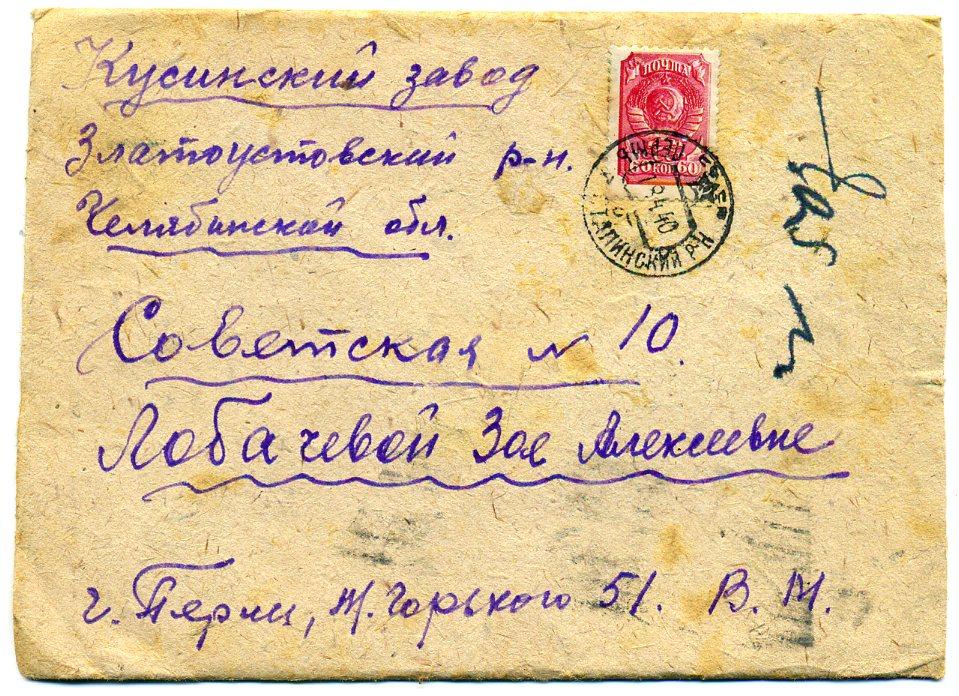 Кусинский завод
Златоустовский р-н.
Челябинской обл.
Советская № 10.
Лобачевой Зое Алексеевне
г. Пермь, М. Горького 51. В. М.
ПОЧТА
60 КОП 60
ПЕРМЬ
4 40